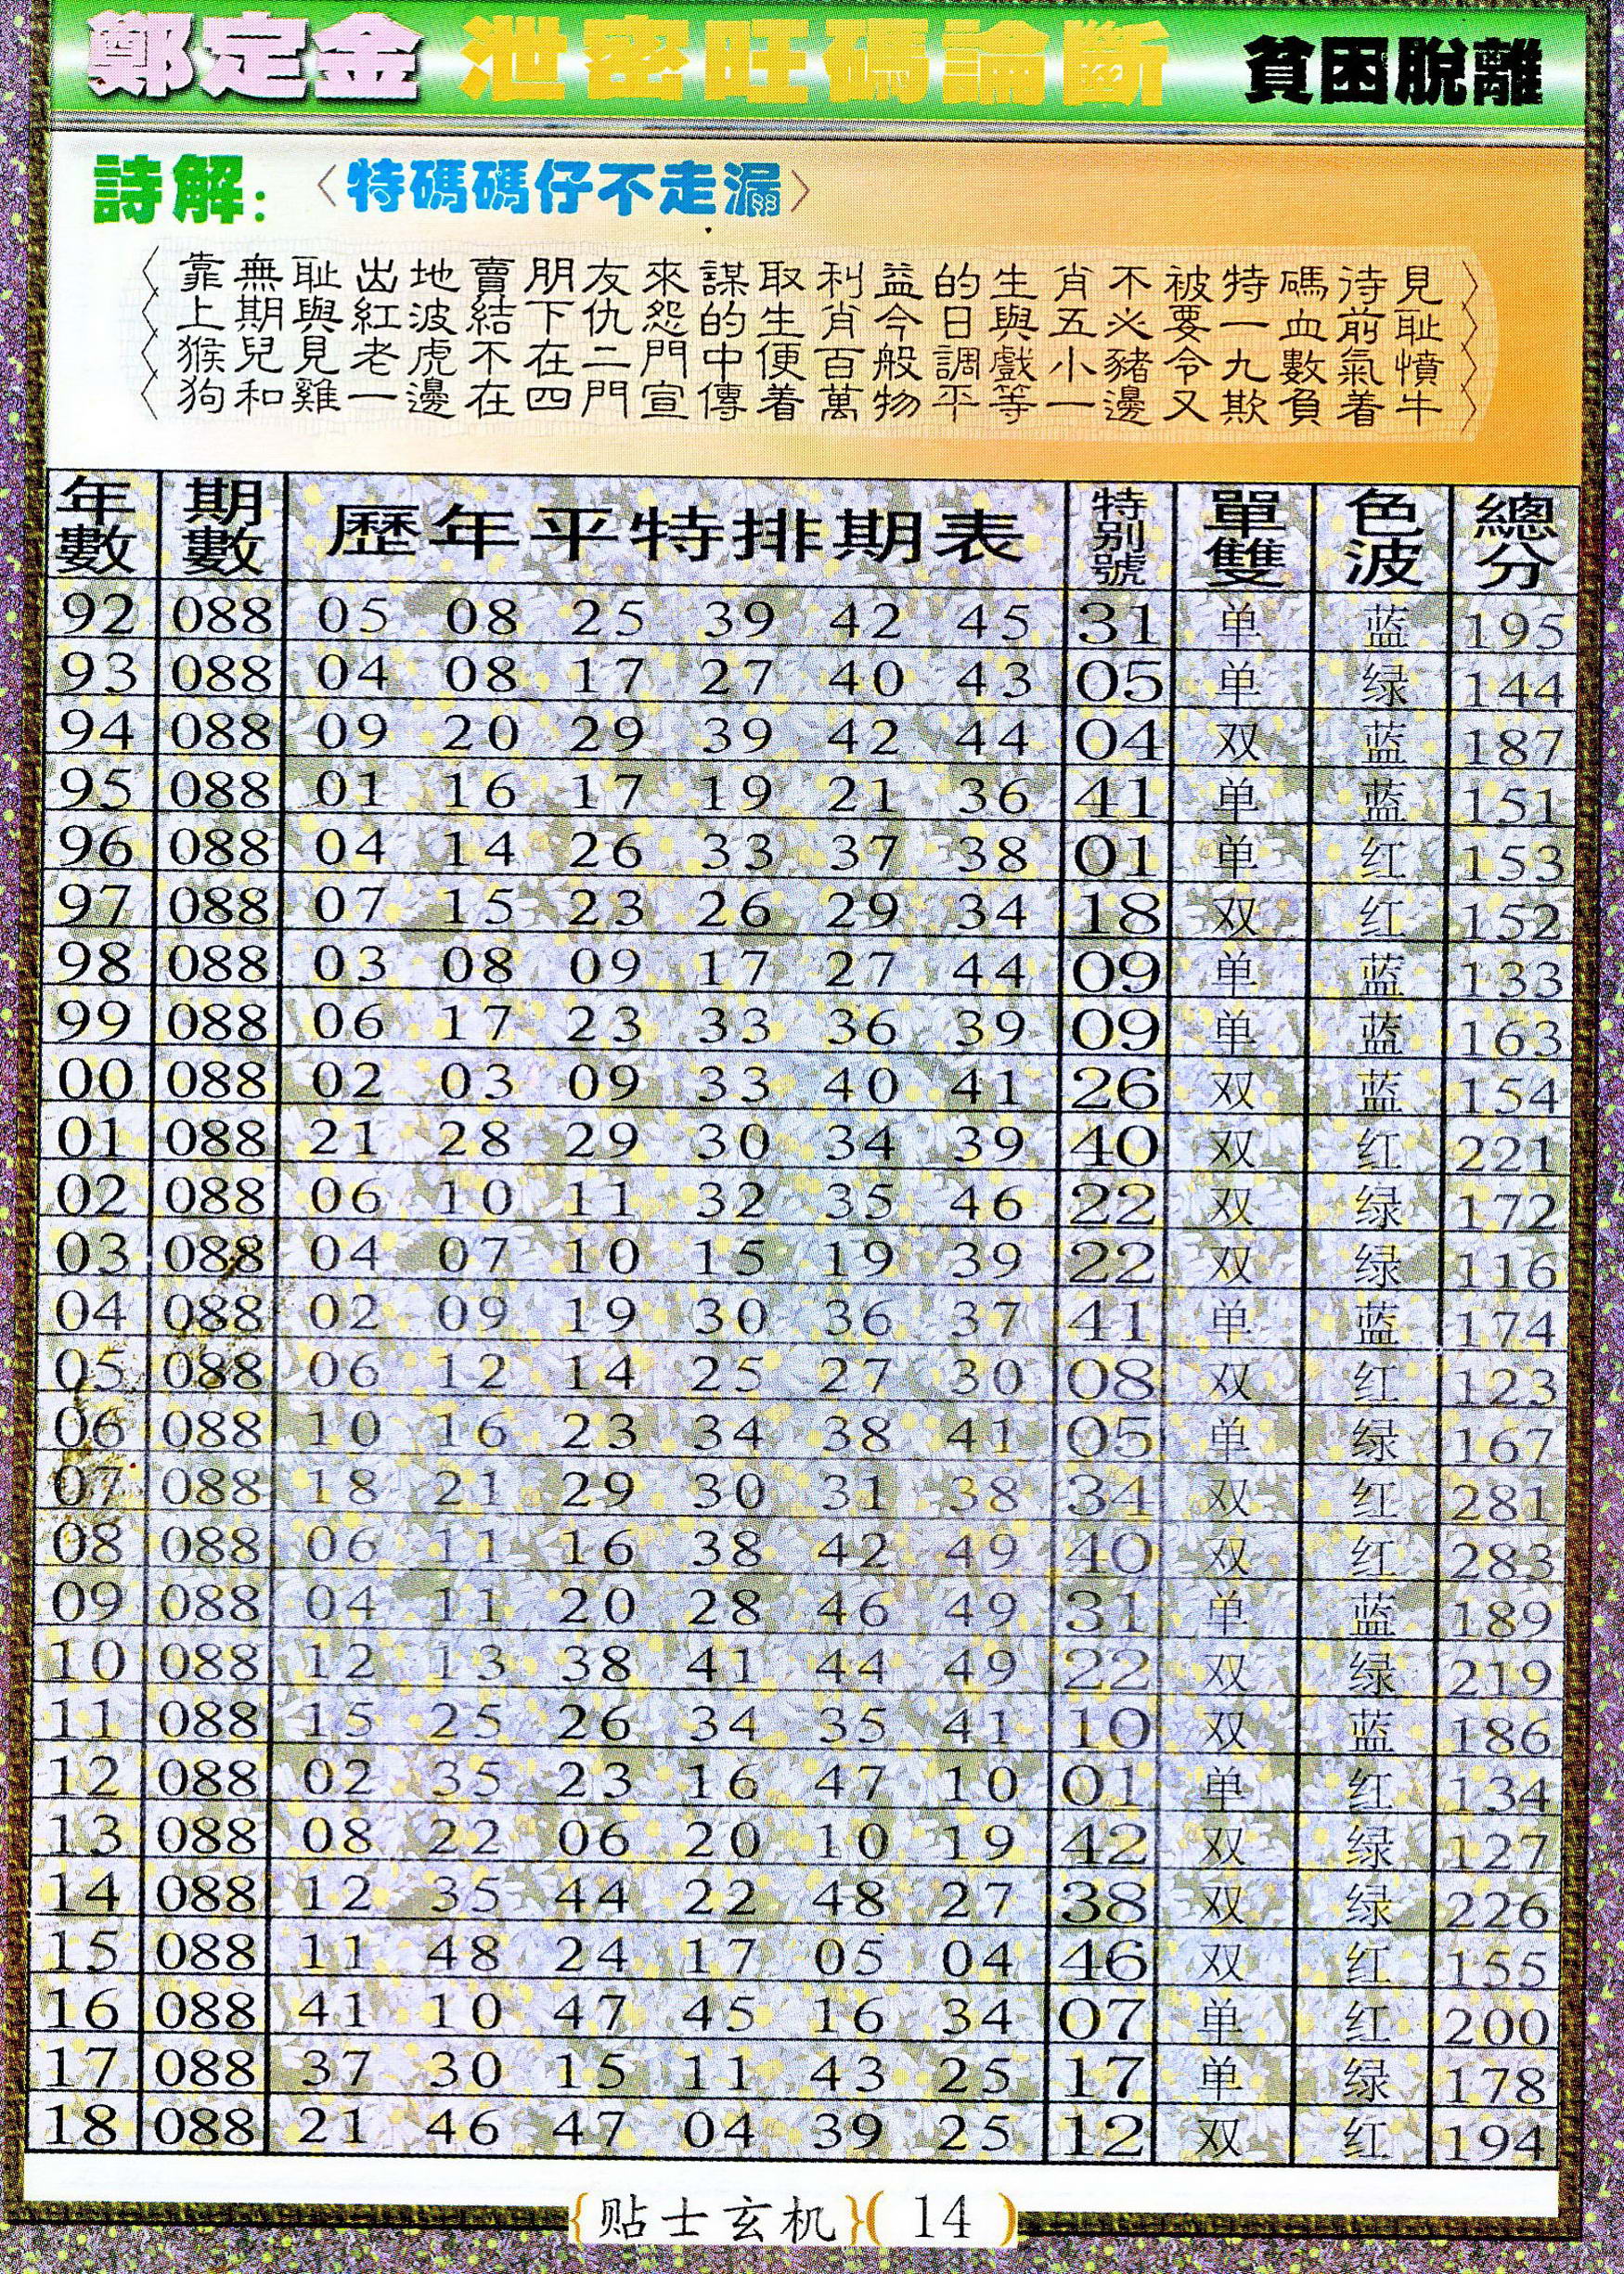 鄭定金 泄密旺碼論斷 貧困脫離
詩解：〈特碼碼仔不走漏〉
靠無恥出地賣朋友來謀取利益的生肖不被特碼待見
上期與紅波結下仇怨的生肖今日與五必要一血前恥
猴兒見老虎不在二門中便百般調戲小豬令九數氣憤
狗和雞一邊在四門宣傳着萬物平等一邊又欺負着牛
年數 期數 歷年平特排期表 特别號 單雙 色波 總分
92 088 05 08 25 39 42 45 31 单 蓝 195
93 088 04 08 17 27 40 43 05 单 绿 144
94 088 09 20 29 39 42 44 04 双 蓝 187
95 088 01 16 17 19 21 36 41 单 蓝 151
96 088 04 14 26 33 37 38 01 单 红 153
97 088 07 15 23 26 29 34 18 双 红 152
98 088 03 08 09 17 27 44 09 单 蓝 133
99 088 06 17 23 33 36 39 09 单 蓝 163
00 088 02 03 09 33 40 41 26 双 蓝 154
01 088 21 28 29 30 34 39 40 双 红 221
02 088 06 10 11 32 35 46 22 双 绿 172
03 088 04 07 10 15 19 39 22 双 绿 116
04 088 02 09 19 30 36 37 41 单 蓝 174
05 088 06 12 14 25 27 30 08 双 红 123
06 088 10 16 23 34 38 41 05 单 绿 167
07 088 18 21 29 30 31 38 34 双 红 281
08 088 06 11 16 38 42 49 40 双 红 283
09 088 04 11 20 28 46 49 31 单 蓝 189
10 088 12 13 38 41 44 49 22 双 绿 219
11 088 15 25 26 34 35 41 10 双 蓝 186
12 088 02 35 23 16 47 10 01 单 红 134
13 088 08 22 06 20 10 19 42 双 绿 127
14 088 12 35 44 22 48 27 38 双 绿 226
15 088 11 48 24 17 05 04 46 双 红 155
16 088 41 10 47 45 16 34 07 单 红 200
17 088 37 30 15 11 43 25 17 单 绿 178
18 088 21 46 47 04 39 25 12 双 红 194
{贴士玄机}(14)